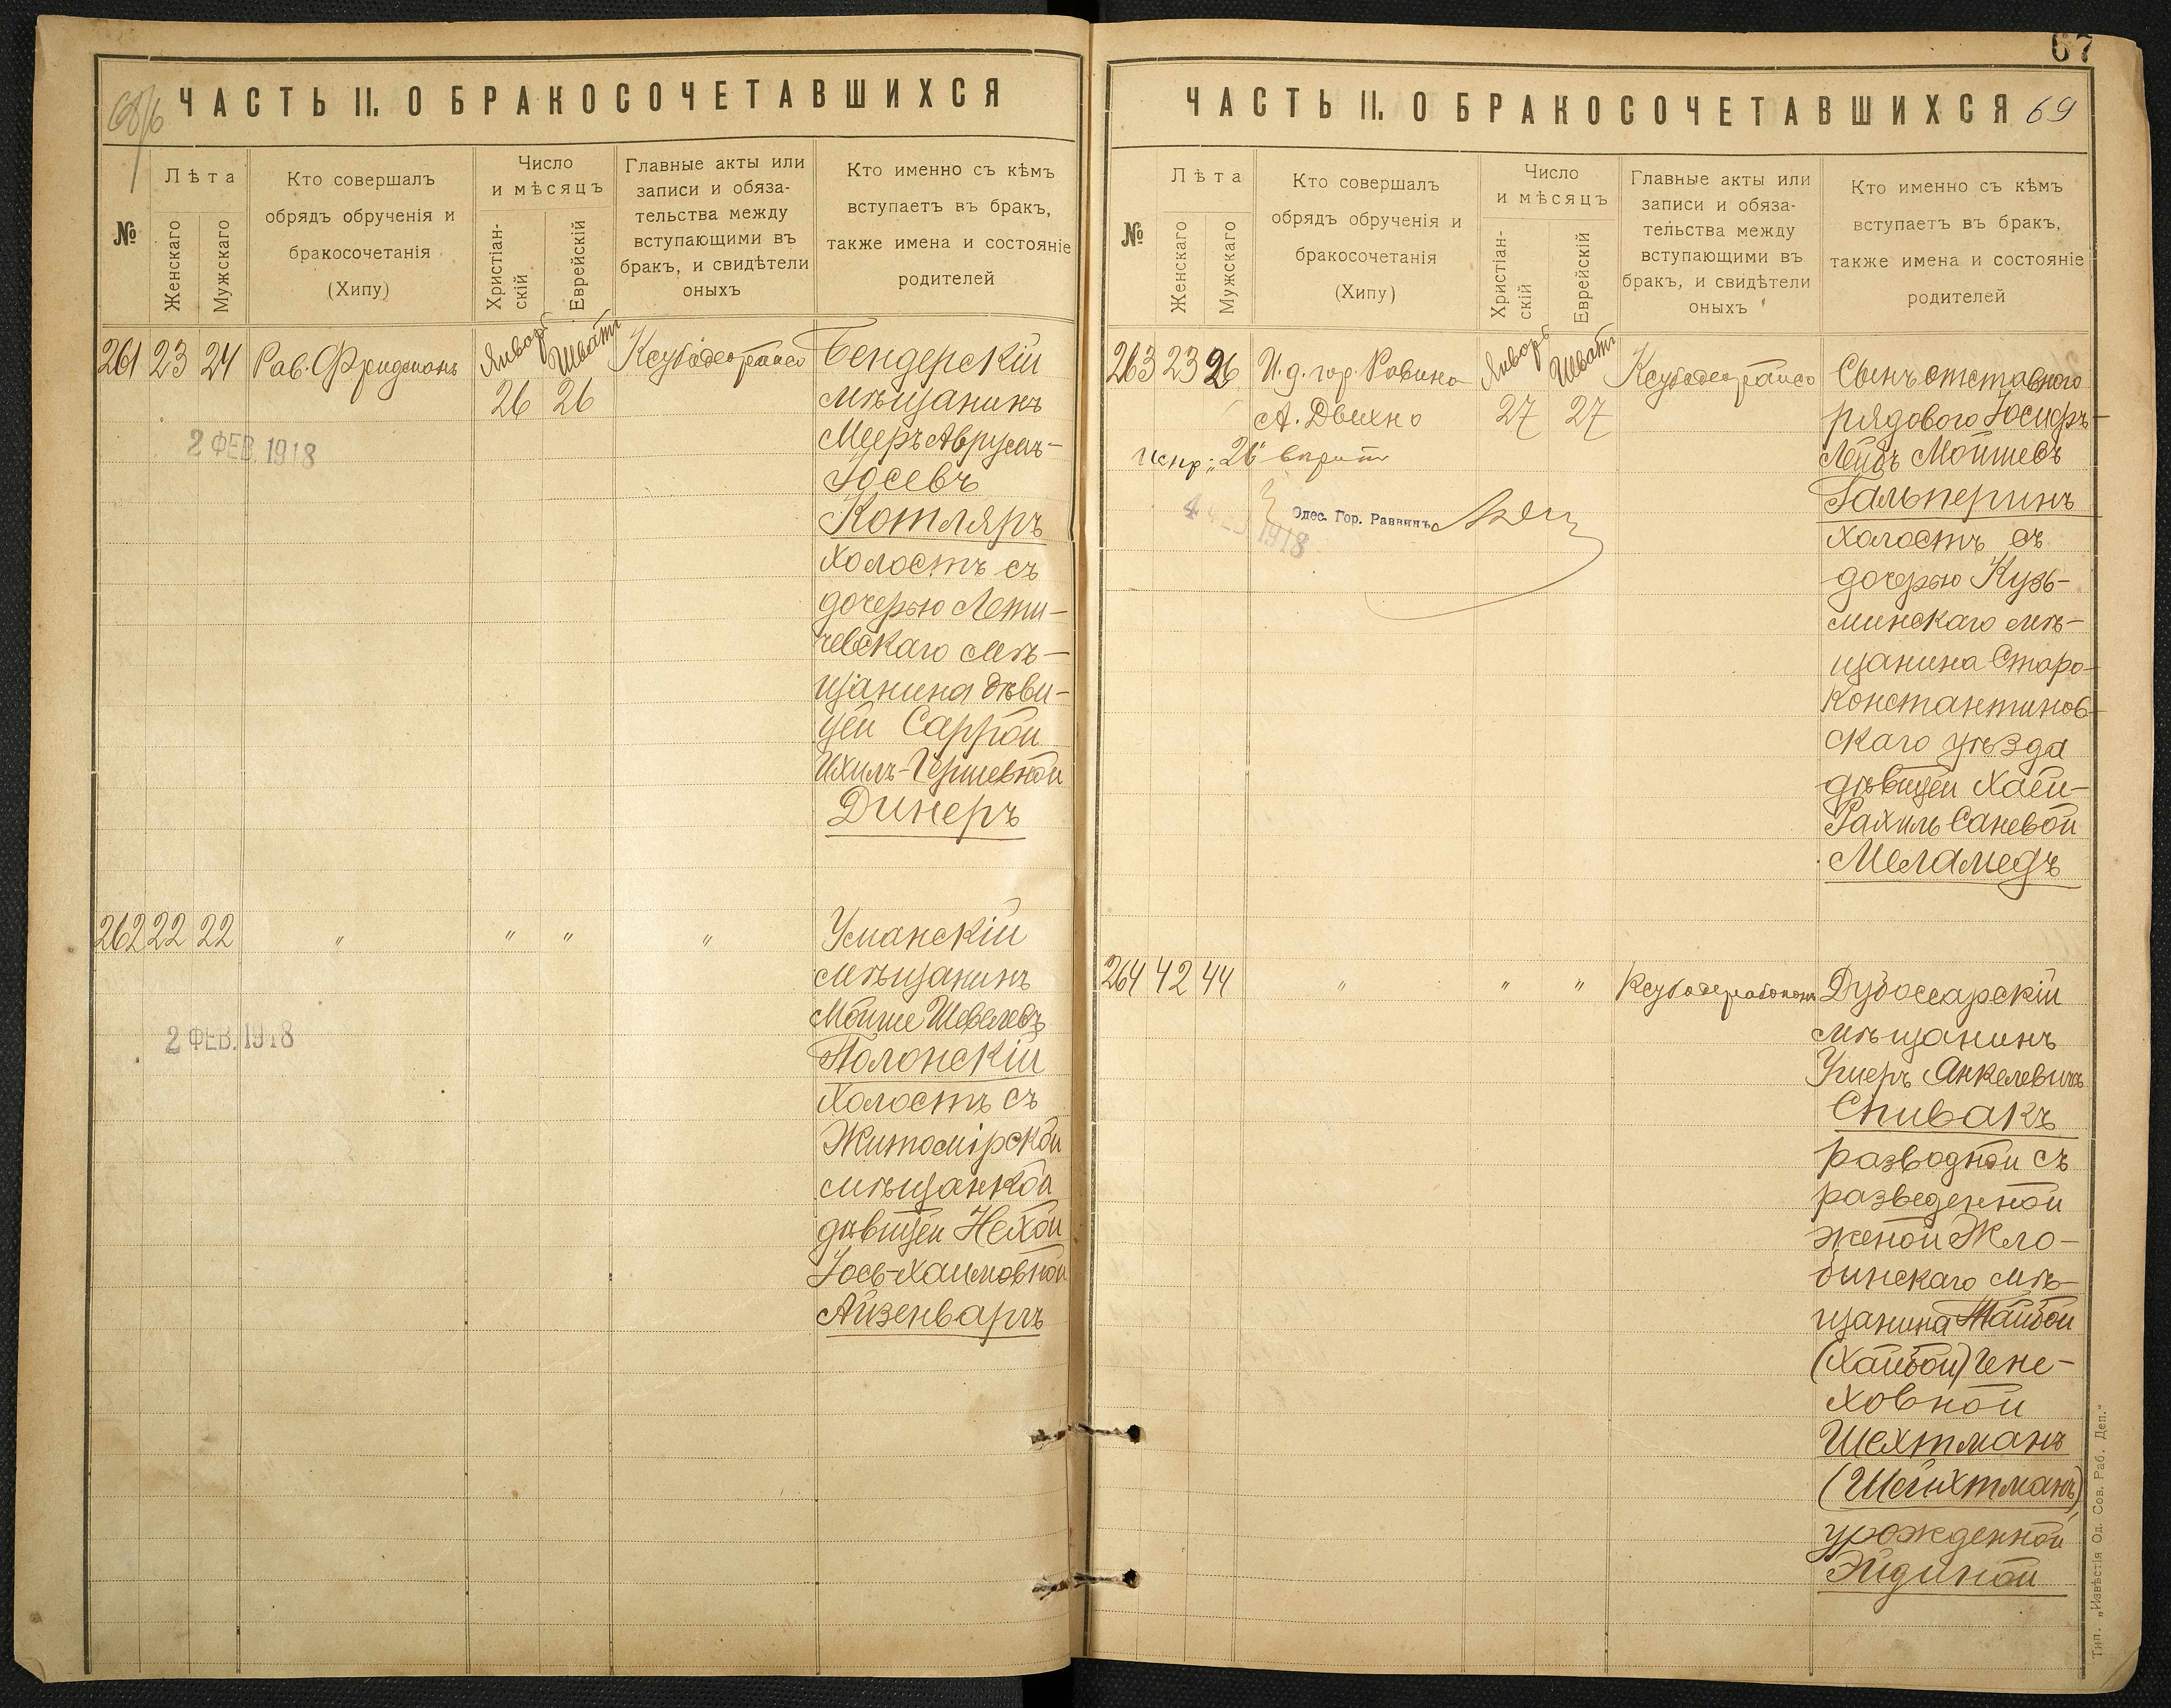 ЧАСТЬ II. О БРАКОСОЧЕТАВШИХСЯ
№
Лѣта
Женскаго
Мужскаго
Кто совершалъ
обрядъ обрученія и
бракосочетанія
(Хипу)
Число
и мѣсяцъ
Христіан-
скій
Еврейскій
Главные акты или
записи и обяза-
тельства между
вступающими въ
бракъ, и свидѣтели
оныхъ
Кто именно съ кѣмъ
вступаетъ въ бракъ,
также имена и состояніе
родителей
261 23 24 Рав. Фридманъ Январь Шватъ
26 26
2 ФЕВ. 1918
Бендерскій
мѣщанинъ
Мееръ Аврумъ-
Іосевъ
Котляръ
холостъ съ
дочерью Лети-
чевскаго мѣ-
щанина дѣви-
цей Саррой
Ихилъ-Гершевной
Динеръ
262 22 22 " " " "
2 ФЕВ. 1918
Уманскій
мѣщанинъ
Мойше Шевелевъ
Полонскій
холостъ съ
Житомірской
мѣщанкой
дѣвицей Нехой
Іось-Хаимовной
Айзенваръ
67
ЧАСТЬ II. О БРАКОСОЧЕТАВШИХСЯ 69
№
Лѣта
Женскаго
Мужскаго
Кто совершалъ
обрядъ обрученія и
бракосочетанія
(Хипу)
Число
и мѣсяцъ
Христіан-
скій
Еврейскій
Главные акты или
записи и обяза-
тельства между
вступающими въ
бракъ, и свидѣтели
оныхъ
Кто именно съ кѣмъ
вступаетъ въ бракъ,
также имена и состояніе
родителей
263 23 26 И.д. гор. Равина Январь Шватъ
А. Двихно 27 27
испр: "26"
4 ФЕВ. 1918
Одес. Гор. Раввинъ
Сынъ отставного
рядового Іосифъ-
Лейбъ Мойшевъ
Гальперинъ
холостъ съ
дочерью Кузь-
минскаго мѣ-
щанина Старо-
константинов-
скаго уѣзда
дѣвицей Хаей-
Рахиль Саневой
Меламедъ
264 42 44 " " "
Дубоссарскій
мѣщанинъ
Ушеръ Анкелевичъ
Спивакъ
разводной съ
разведенной
женой Жло-
бинскаго мѣ-
щанина Тайбой
(Хайбой) Гене-
ховной
Шехтманъ
(Шейхтманъ),
урожденной
Эйдиной
Тип. „Извѣстія Од. Сов. Раб. Деп."